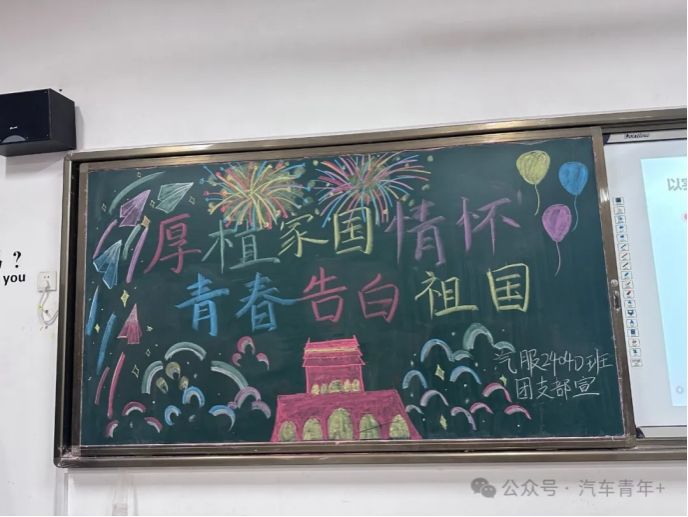 厚植家国情怀
青春告白祖国
汽服2404D班
团支部宣
?
you
以
公众号·汽车青年+